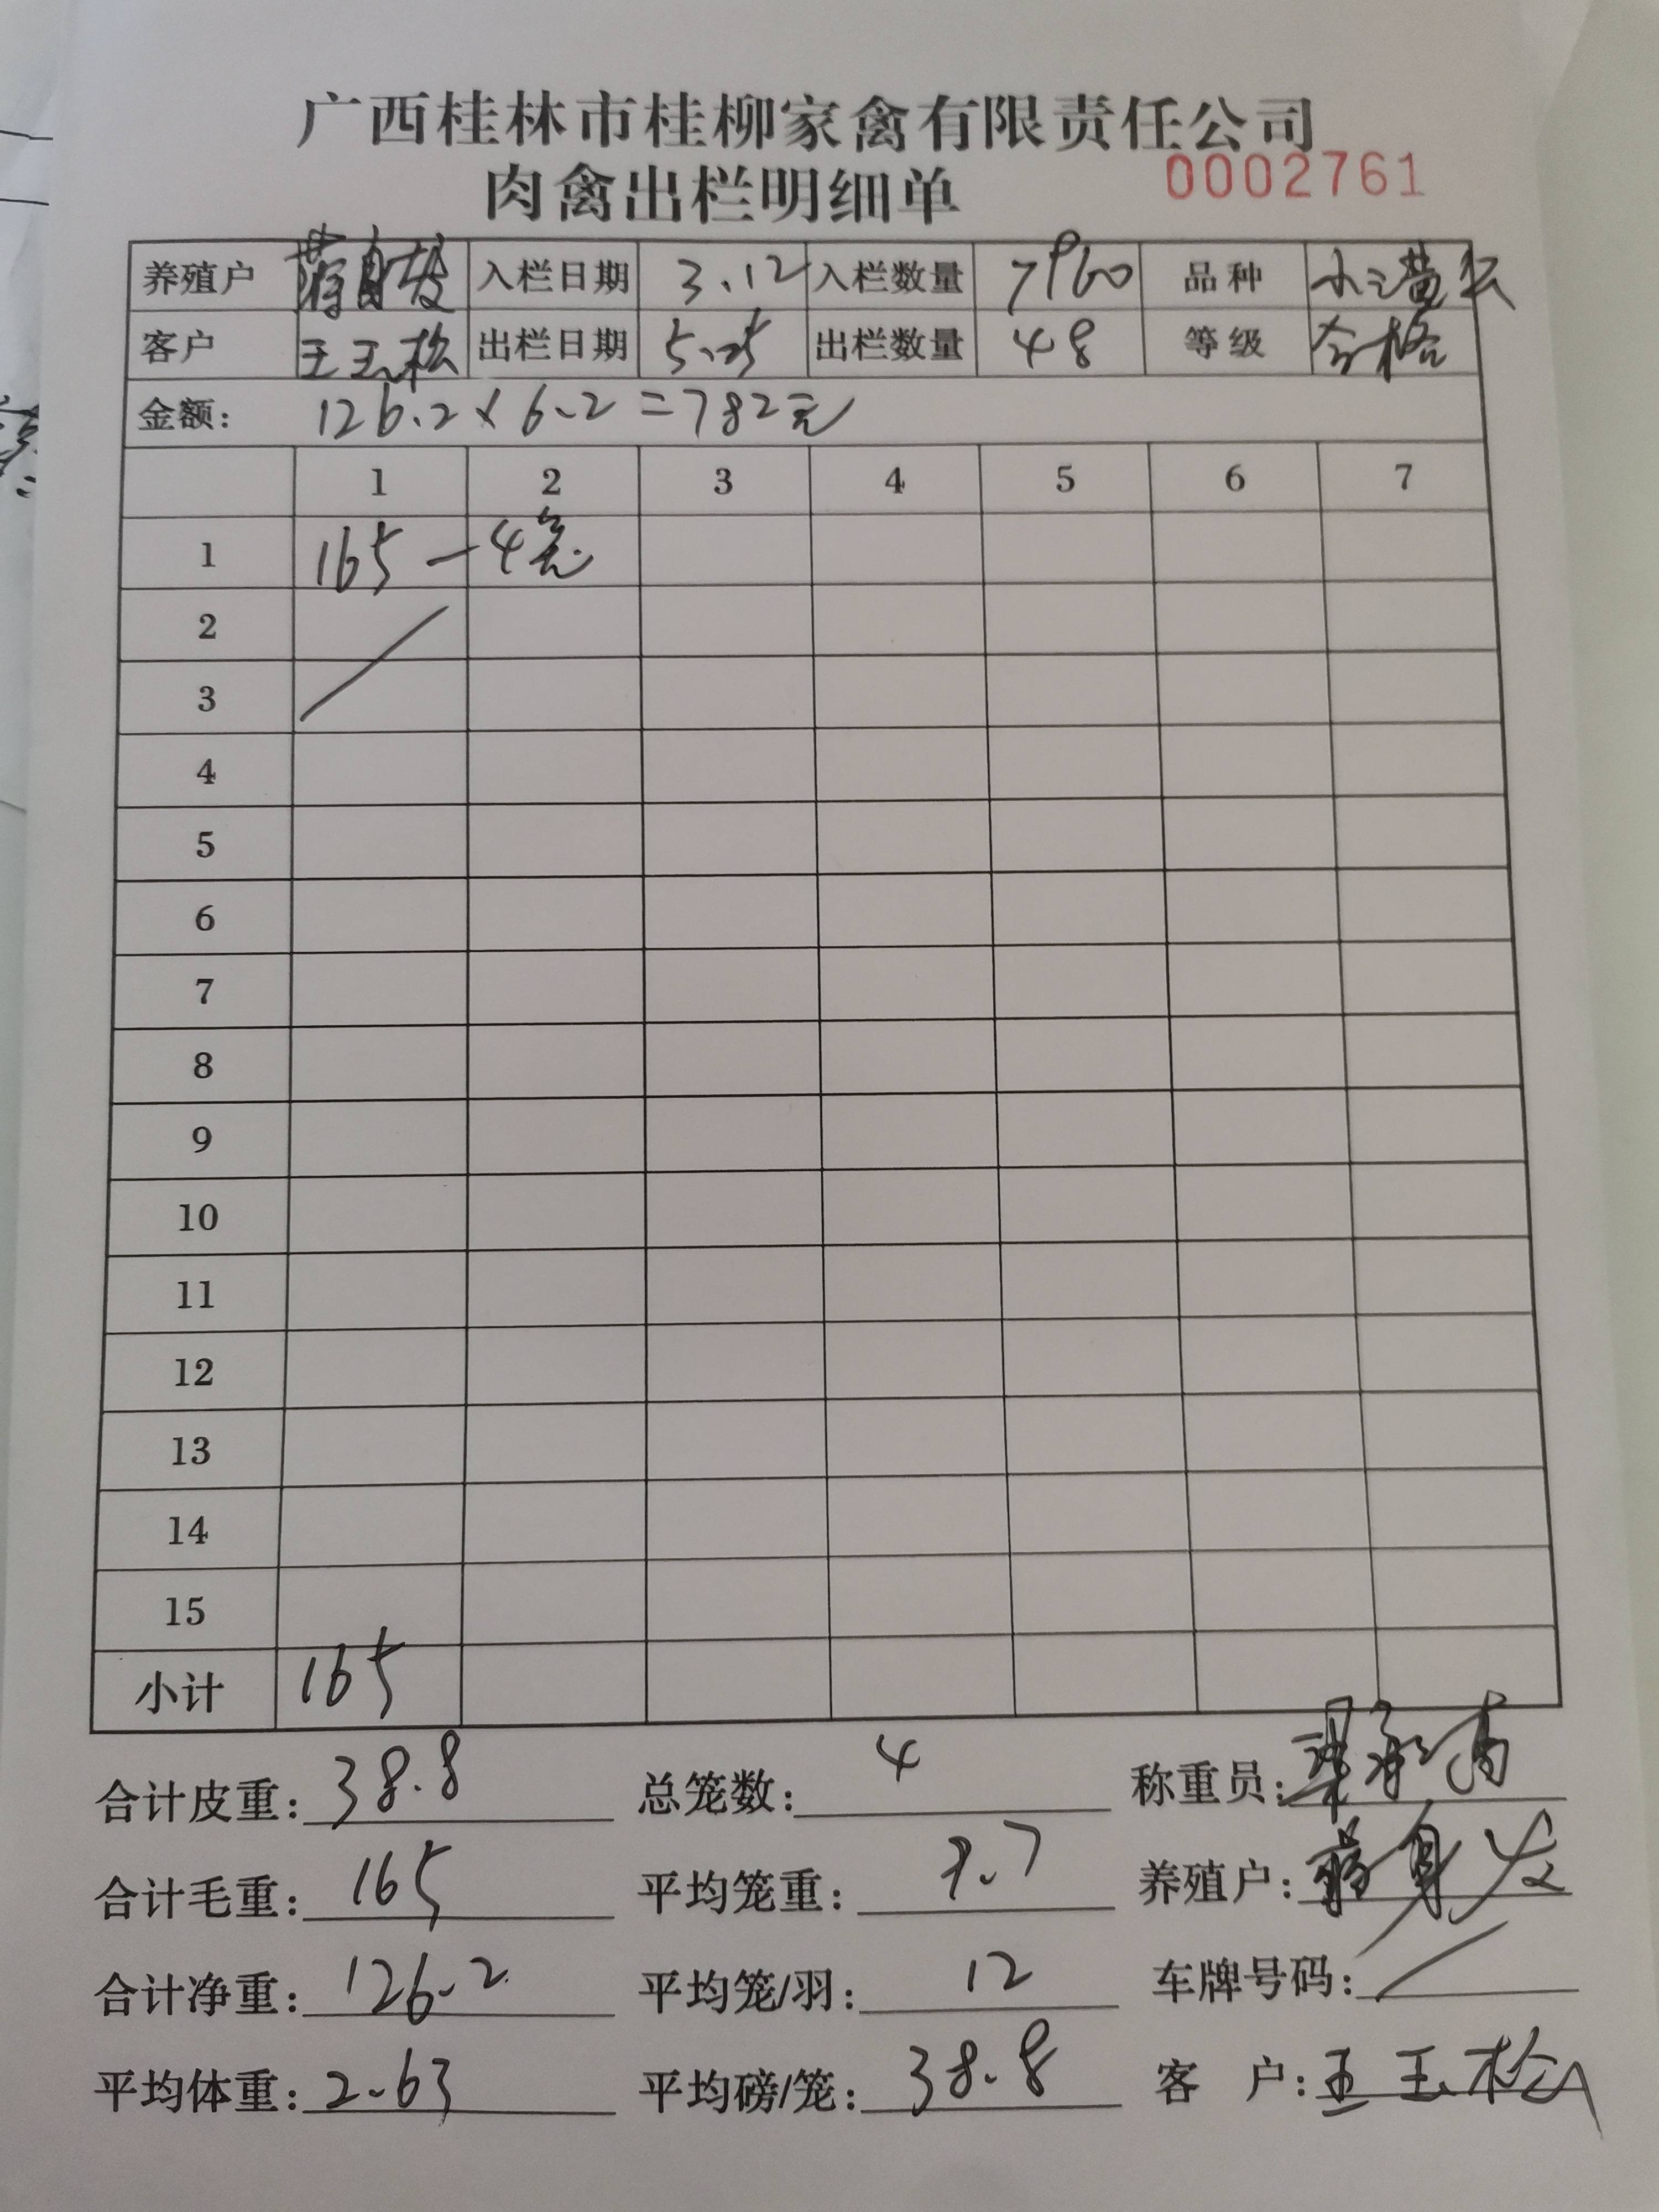 广西桂林市桂柳家禽有限责任公司
肉禽出栏明细单 0002761
养殖户 蒋身发 入栏日期 3.12 入栏数量 7960 品种 小三黄
客户 王玉松 出栏日期 5.25 出栏数量 48 等级 合格
金额: 126.2×6.2=782元
1 2 3 4 5 6 7
1 165 —4笼
2
3
4
5
6
7
8
9
10
11
12
13
14
15
小计 165
合计皮重: 38.8 总笼数: 4 称重员:
合计毛重: 165 平均笼重: 9.7 养殖户: 蒋身发
合计净重: 126.2 平均笼/羽: 12 车牌号码:
平均体重: 2.63 平均磅/笼: 38.8 客 户: 王玉松